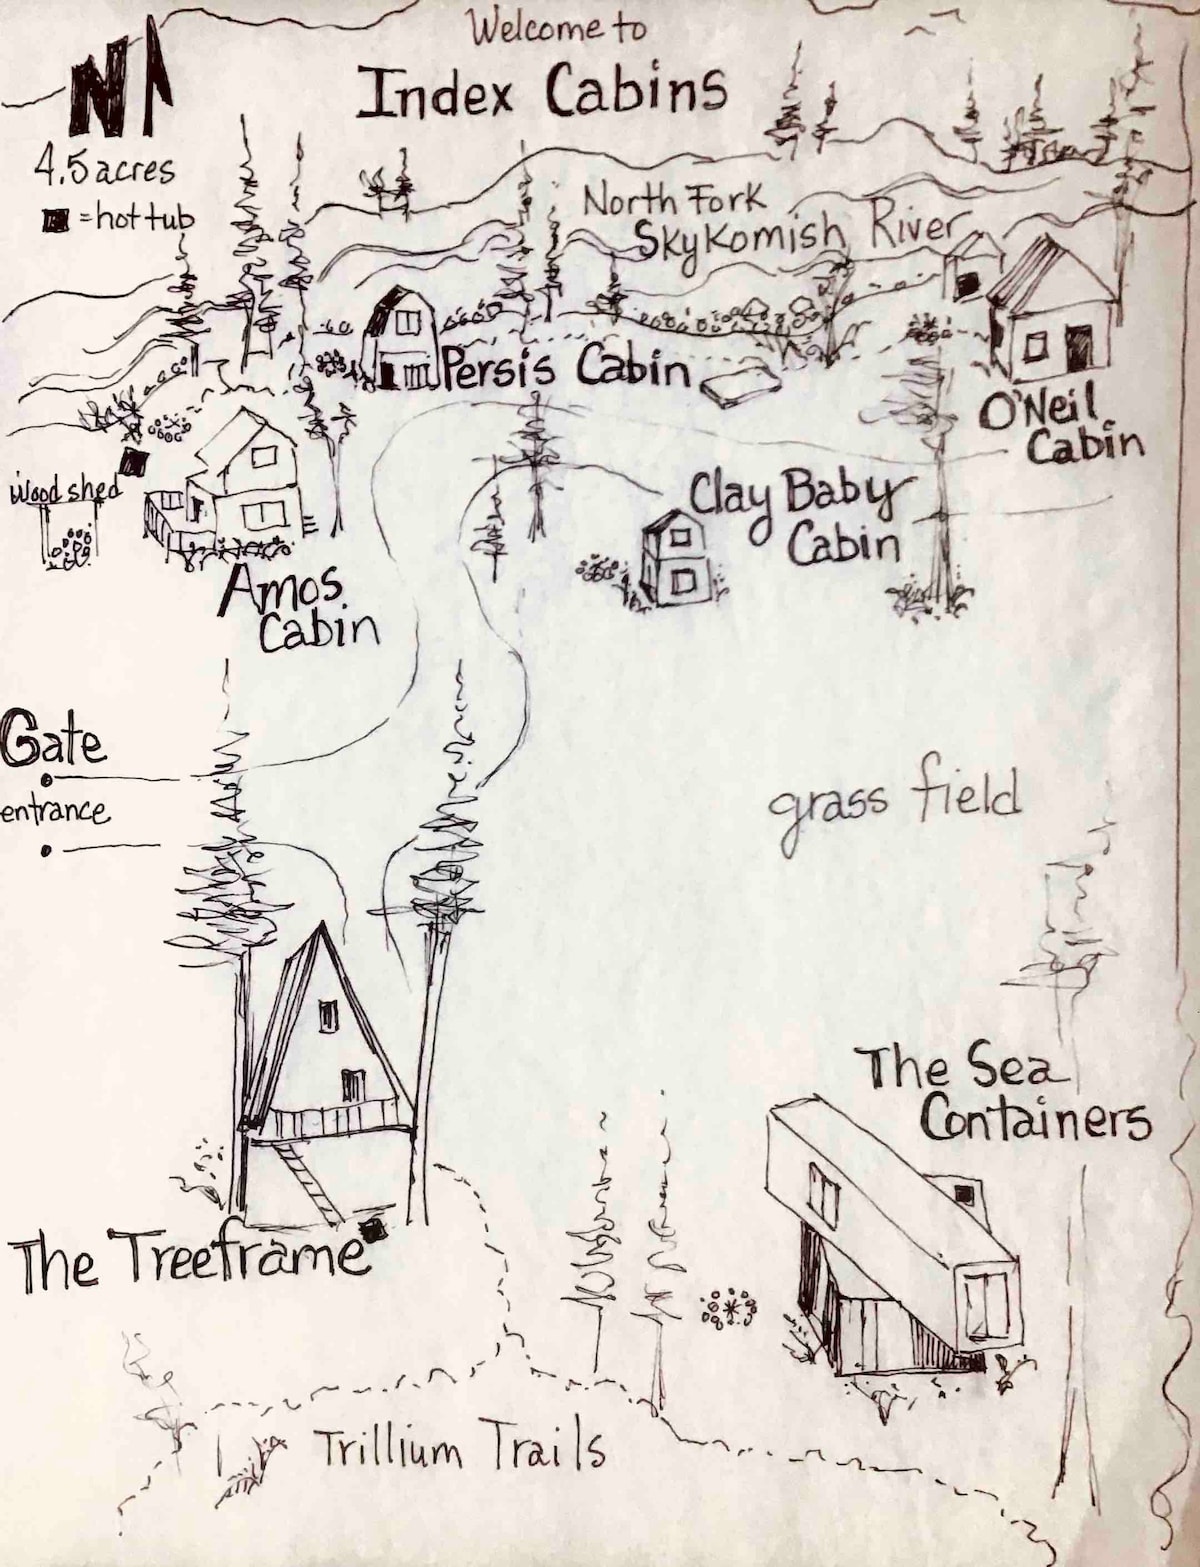 Welcome to
Index Cabins
N
4.5 acres
= hot tub
North Fork
Skykomish River
Persis Cabin
O'Neil
Cabin
Wood shed
Clay Baby
Cabin
Amos
Cabin
Gate
entrance
grass field
The Sea
Containers
The Treeframe
Trillium Trails